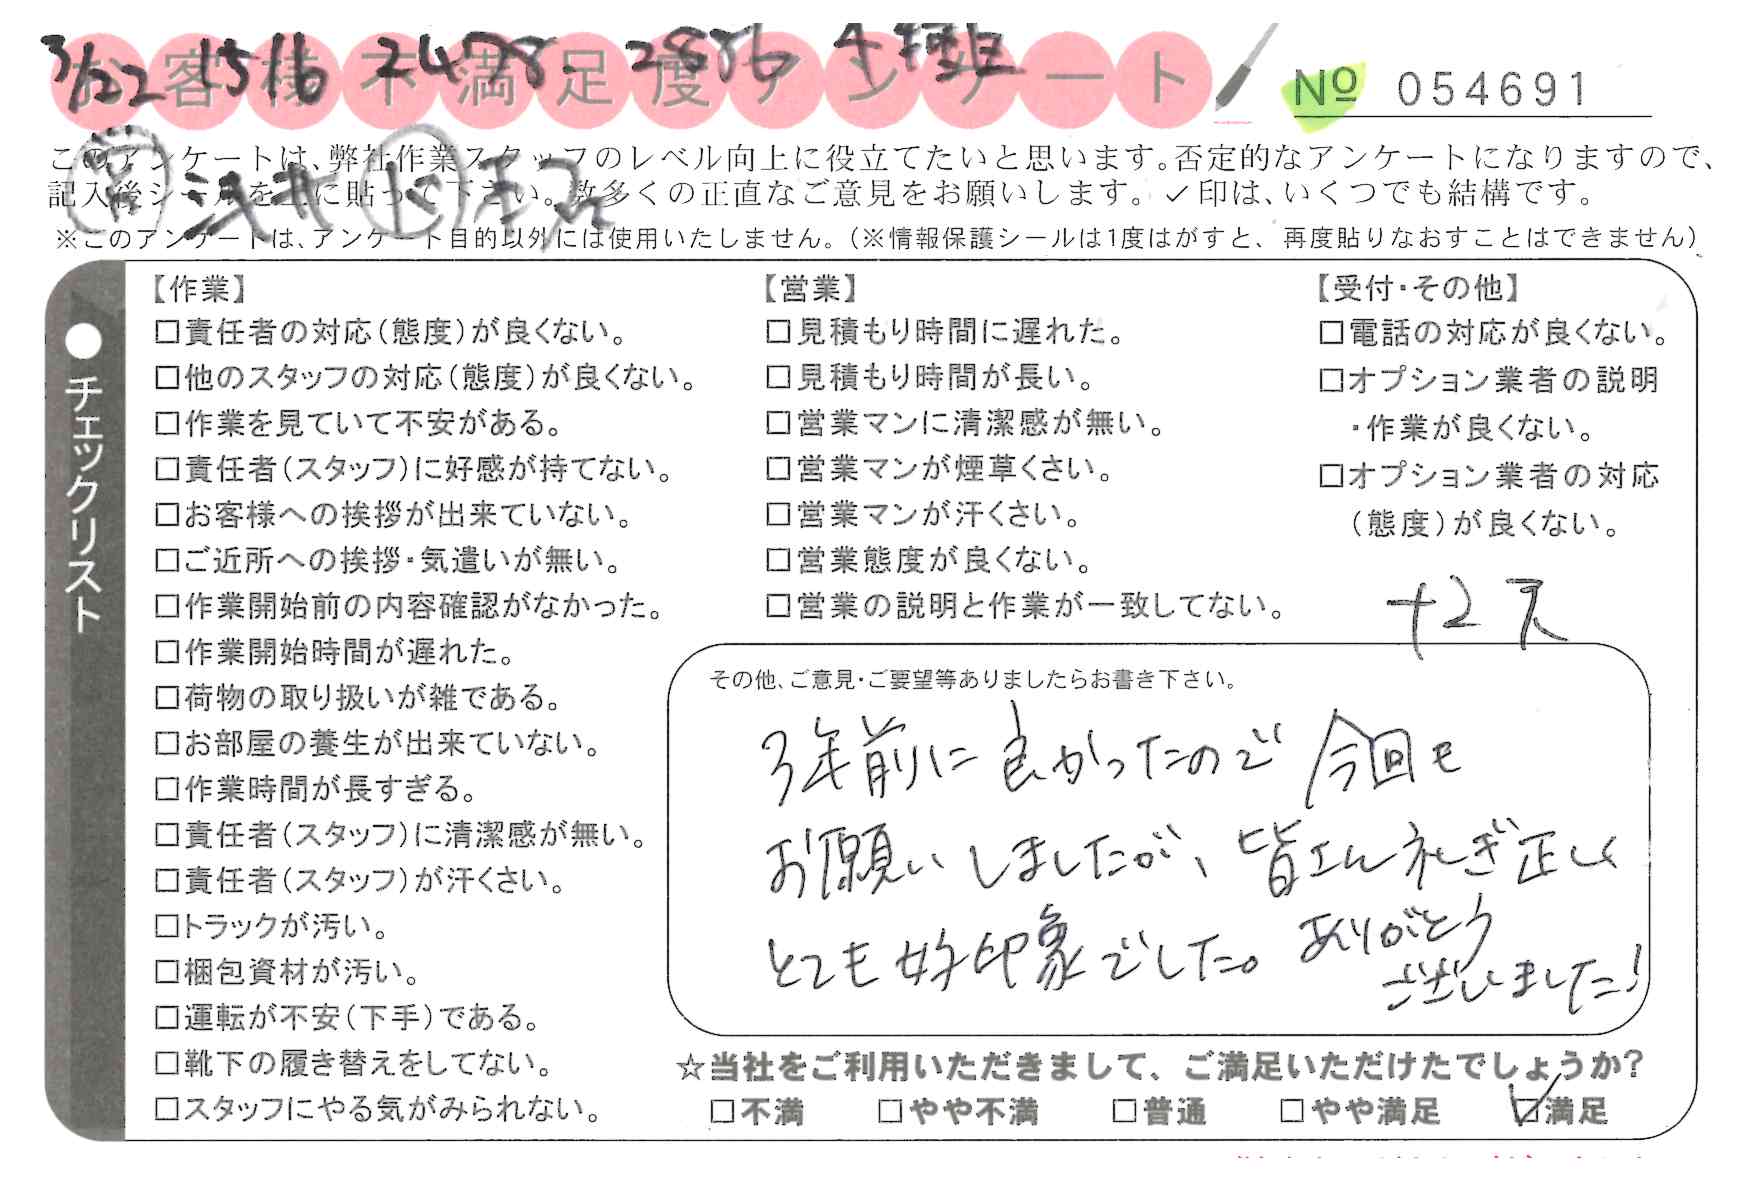 3/22 1516 2478 2886 4
お客様不満足度アンケート
№ 054691
このアンケートは、弊社作業スタッフのレベル向上に役立てたいと思います。否定的なアンケートになりますので、
記入後シールを上に貼って下さい。数多くの正直なご意見をお願いします。✓印は、いくつでも結構です。
※このアンケートは、アンケート目的以外には使用いたしません。(※情報保護シールは1度はがすと、再度貼りなおすことはできません)
●チェックリスト
【作業】
□責任者の対応(態度)が良くない。
□他のスタッフの対応(態度)が良くない。
□作業を見ていて不安がある。
□責任者(スタッフ)に好感が持てない。
□お客様への挨拶が出来ていない。
□ご近所への挨拶・気遣いが無い。
□作業開始前の内容確認がなかった。
□作業開始時間が遅れた。
□荷物の取り扱いが雑である。
□お部屋の養生が出来ていない。
□作業時間が長すぎる。
□責任者(スタッフ)に清潔感が無い。
□責任者(スタッフ)が汗くさい。
□トラックが汚い。
□梱包資材が汚い。
□運転が不安(下手)である。
□靴下の履き替えをしてない。
□スタッフにやる気がみられない。
【営業】
□見積もり時間に遅れた。
□見積もり時間が長い。
□営業マンに清潔感が無い。
□営業マンが煙草くさい。
□営業マンが汗くさい。
□営業態度が良くない。
□営業の説明と作業が一致してない。
【受付・その他】
□電話の対応が良くない。
□オプション業者の説明
・作業が良くない。
□オプション業者の対応
(態度)が良くない。
その他、ご意見・ご要望等ありましたらお書き下さい。
3年前に良かったので今回も
お願いしましたが、皆さん礼ぎ正しく
とても好印象でした。ありがとう
ございました!
☆当社をご利用いただきまして、ご満足いただけたでしょうか?
□不満 □やや不満 □普通 □やや満足 ☑満足